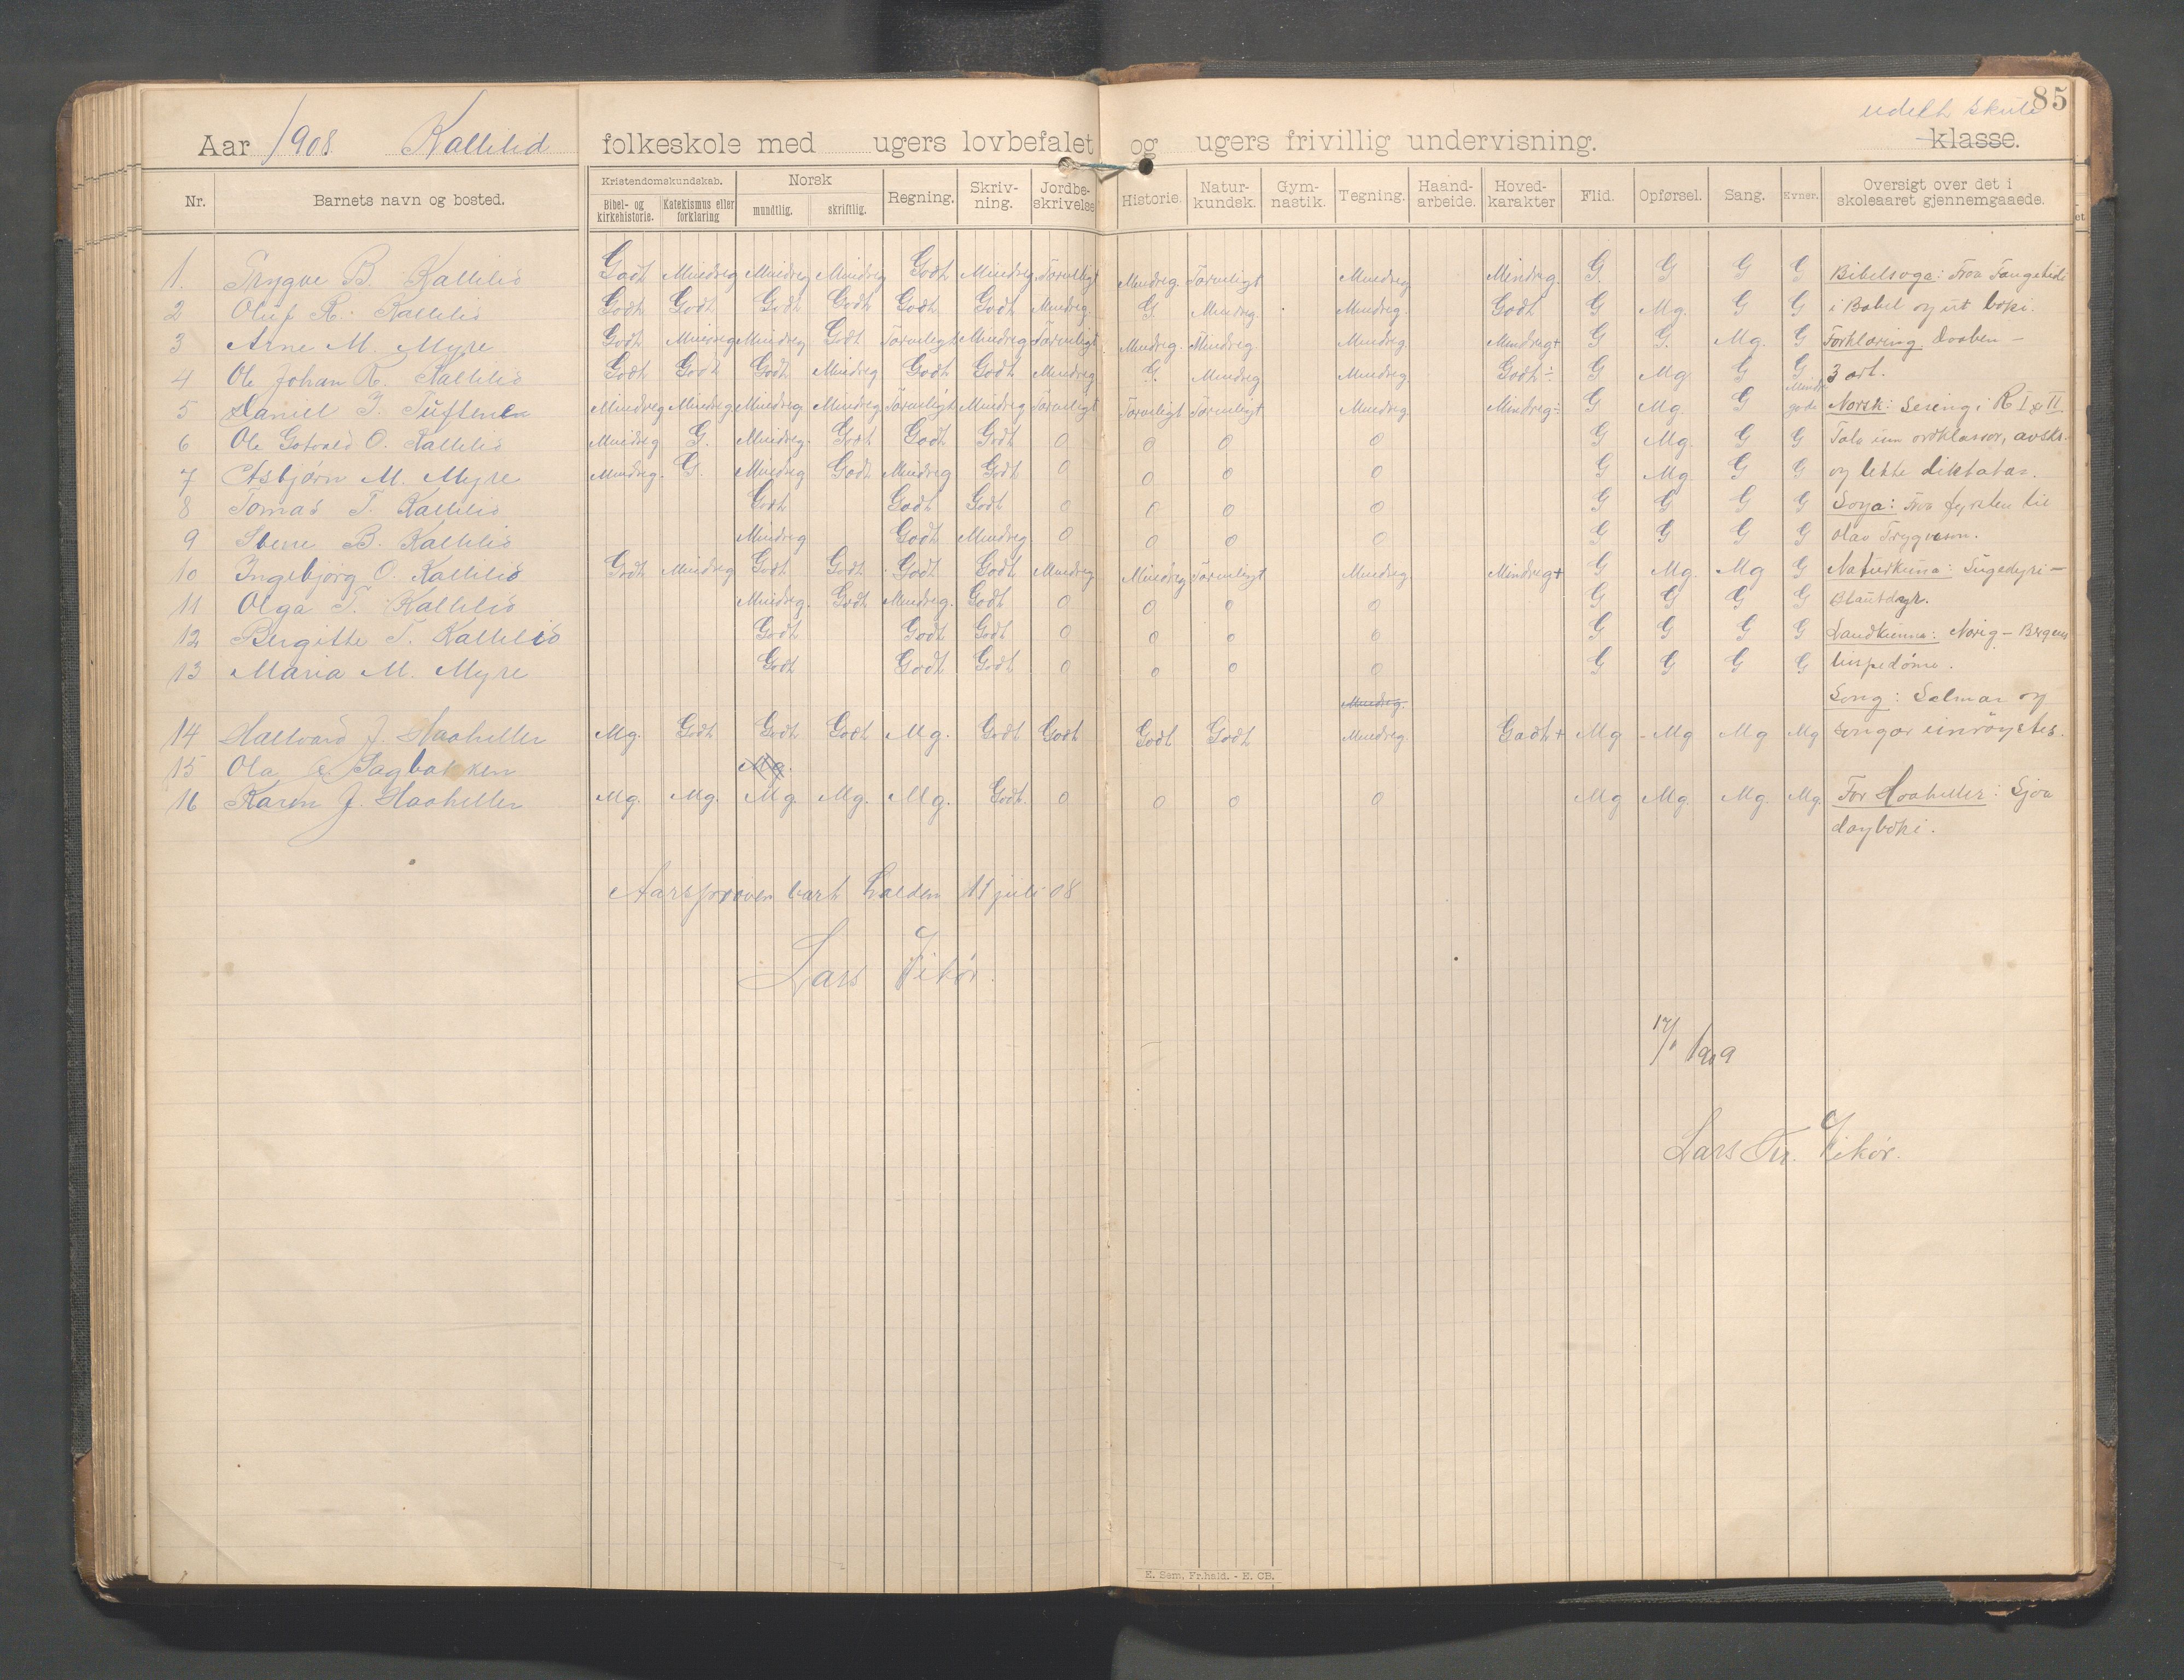 85
udelt skule
Aar 1908. Kallelid folkeskole med ugers lovbefalet og ugers frivillig undervisning. klasse.
Nr. Barnets navn og bosted. Kristendomskundskab. Bibel- og kirkehistorie. Katekismus eller forklaring Norsk mundtlig. skriftlig. Regning. Skriv-ning. Jordbe-skrivelse Historie. Natur-kundsk. Gym-nastik. Tegning. Haand-arbeide. Hoved-karakter Flid. Opførsel. Sang. Evner. Oversigt over det i skoleaaret gjennemgaaede.
1. Trygve B. Kallelid Godt Mindreg Mindreg Mindreg Godt Mindreg Tarveligt Mindreg. Tarveligt Mindreg Mindreg. G. G G G Bibelsoga: Fraa
2 Oluf R. Kallelid Godt Godt Godt Godt Godt Godt Mindreg. G Mindreg. Mindreg. Godt G Mg. G G i Babel og ut boki.
3 Arne M. Myre Godt Mindreg Mindreg Godt Tarveligt Mindreg Tarveligt Mindreg. Mindreg. Mindreg. Mindreg+ G G. Mg. G Forklaring Daaben –
4 Ole Johan R. Kallelid Godt Godt Godt Mindreg Godt Godt Mindreg G. Mindreg Mindreg. Godt÷ G Mg. G G 3 art.
5 Daniel J. Tuftene Mindreg Mindreg Mindreg Mindreg Tarveligt Mindreg Tarveligt Tarveligt Tarveligt Mindreg. Mindreg÷ G Mg. G Mindre gode Norsk: Lesing i R I & II
6 Ole Gotvald O. Kallelid Mindreg G. Mindreg. Godt Godt Godt 0 0 0 0 G Mg. G G Tala um ordklassor, avskr.
7 Asbjørn M. Myre Mindreg. G. Mindreg Godt Mindreg Godt 0 0 0 0 G Mg G G og lette diktatar.
8 Tomas T. Kallelid Godt Godt Godt 0 0 0 0 G G G G Soga: Fraa fyrsten til
9 B. Kallelid Mindreg Godt Mindreg 0 0 0 0 G G G G Olav Trygveson.
10 Ingebjørg O. Kallelid Godt Mindreg Godt Godt Godt Godt Mindreg Mindreg Tarveligt Mindreg Mindreg+ G Mg. Mg G Naturkunna: Sugedyri –
11 Olga T. Kallelid Mindreg. Godt Mindreg. Godt 0 0 0 0 G G G G Blautdyr.
12 Bergitte T. Kallelid Godt Godt Godt 0 0 0 0 G G G G Landkunna: Norig – Bergens
13 Maria M. Myre Godt Godt Godt 0 0 0 0 G G G G bispedøme.
Mindreg. Song: Salmar og
14 Hallvard J. Haaheller Mg. Godt Godt Godt Mg. Godt Godt Godt Godt Mindreg. Godt+ Mg Mg Mg Mg songar einrøystes.
15 Ola Sagbakken Mg.
16 Karen J. Haaheller Mg. Mg. Mg. Mg. Mg. Godt. 0 0 0 0 Mg Mg. Mg. Mg. For Haaheller: Sjaa
dagboki.
Aarsprøven vart halden 11 juli 08
Lars Vikør.
17/1 1909
Lars Tr. Vikør.
E. Sem, Fr.hald. - E. CB.